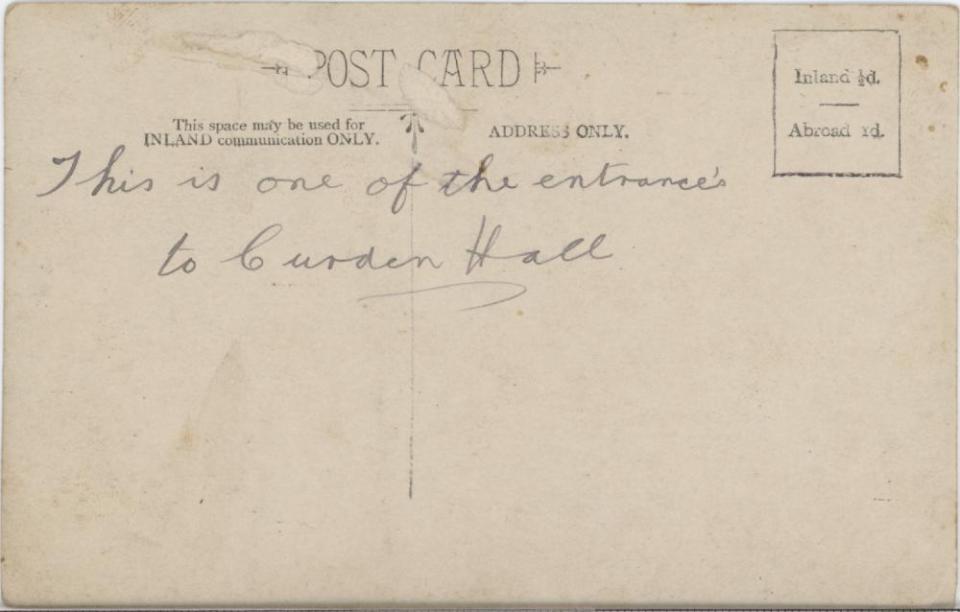 POST CARD
This space may be used for
INLAND communication ONLY.
ADDRESS ONLY.
Inland ½d.
Abroad 1d.
This is one of the entrance's
to Curden Hall